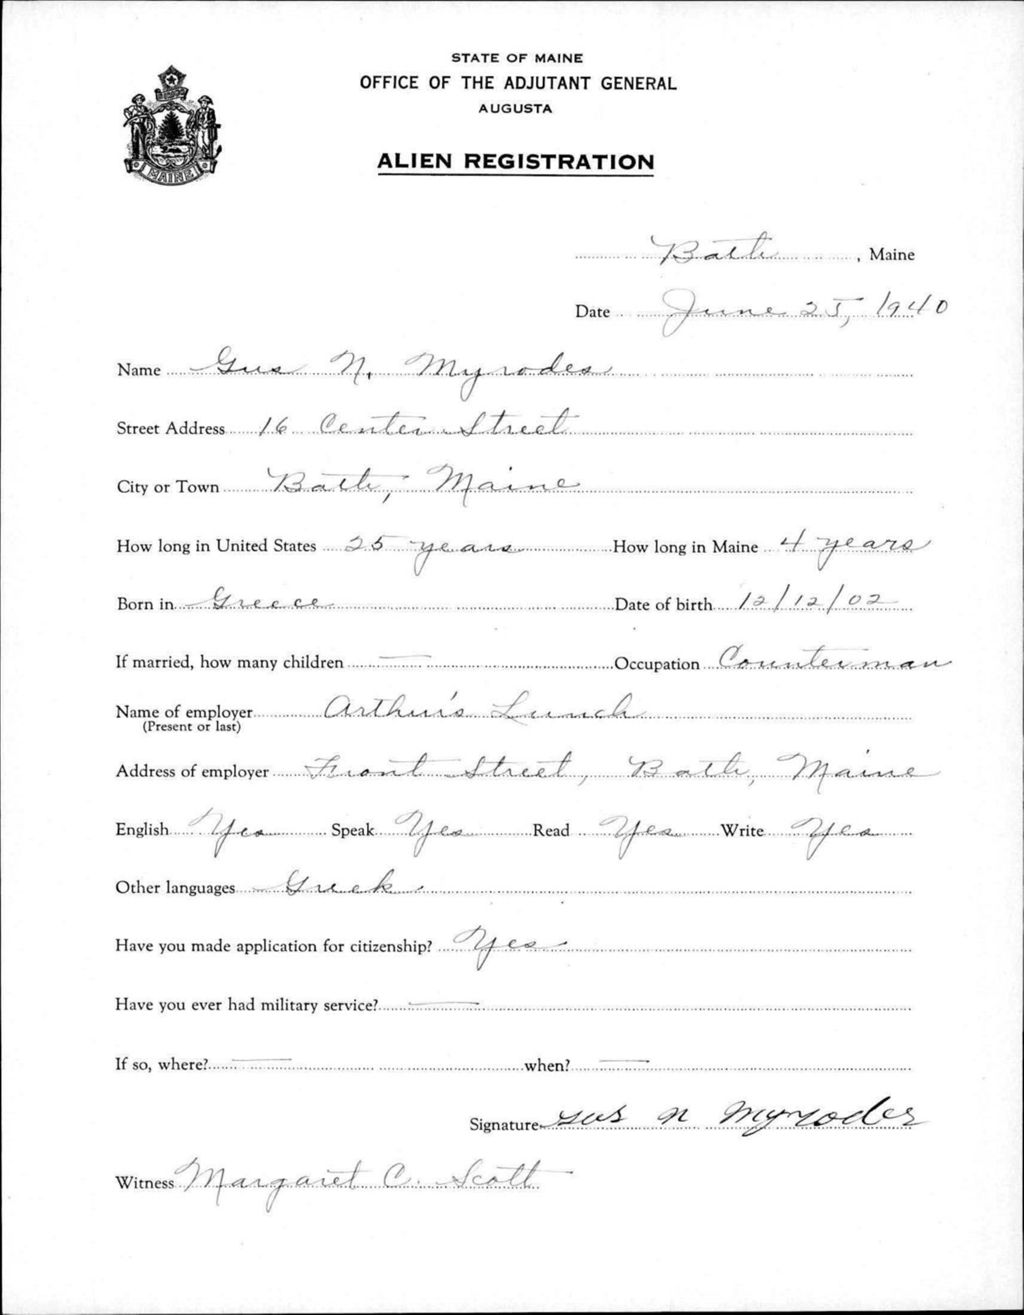 STATE OF MAINE
OFFICE OF THE ADJUTANT GENERAL
AUGUSTA
ALIEN REGISTRATION
MAINE
Bath, Maine
Date June 25, 1940
Name Gus N. Myrodes
Street Address 16 Center Street
City or Town Bath, Maine
How long in United States 25 years How long in Maine 4 years
Born in Greece Date of birth 12/12/02
If married, how many children — Occupation Counterman
Name of employer Arthur's Lunch
(Present or last)
Address of employer Front Street, Bath, Maine
English Yes Speak Yes Read Yes Write Yes
Other languages Greek
Have you made application for citizenship? Yes
Have you ever had military service? —
If so, where? — when? —
Signature Gus N Myrodes
Witness Margaret C. Scott